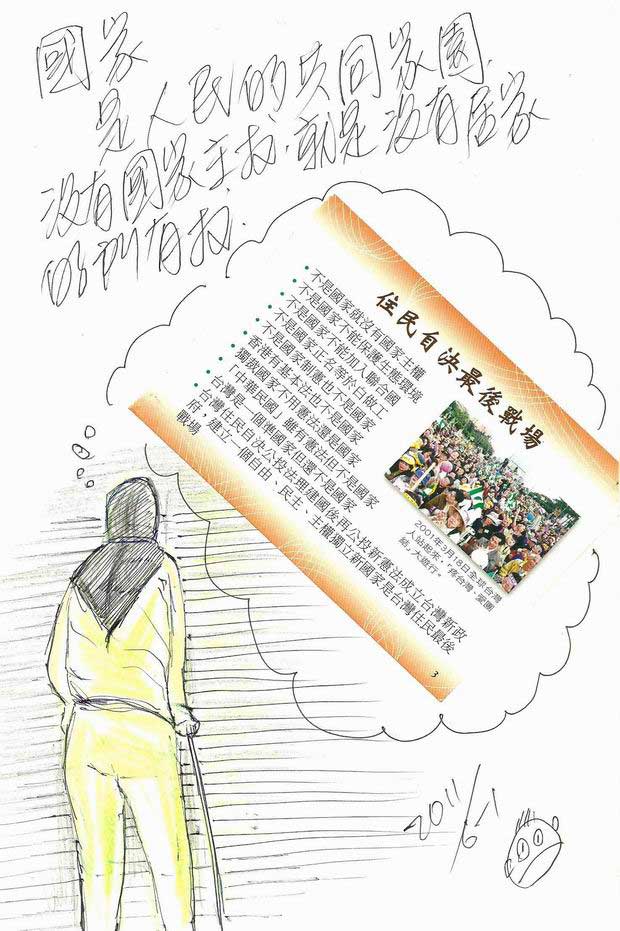 國家
是人民的共同家園.
沒有國家主权.就是沒有居家
的所有权.
住民自決最後戰場
• 不是國家就沒有國家主權
• 不是國家不能保護生態環境
• 不是國家不能加入聯合國
• 不是國家正名等於白做工
• 不是國家制憲也不是國家
• 香港有基本法也不是國家
• 獨裁國家不用憲法還是國家
• 「中華民國」雖有憲法但不是國家
• 台灣是一個應國家但還不是國家
• 台灣住民自決公投法理建國後再公投新憲法成立台灣新政
府，建立一個自由、民主、主權獨立新國家是台灣住民最後
戰場
2001年3月18日全球台灣
人站起來，「疼台灣，愛團
結」大遊行。
3
2011/6-1